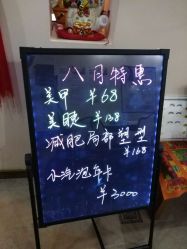 八月特惠
美甲 ¥68
美睫 ¥138
减肥局部塑型
¥168
小汽泡年卡
¥3000